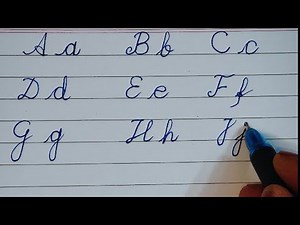 A a B b C c
D d E e F f
G g H h